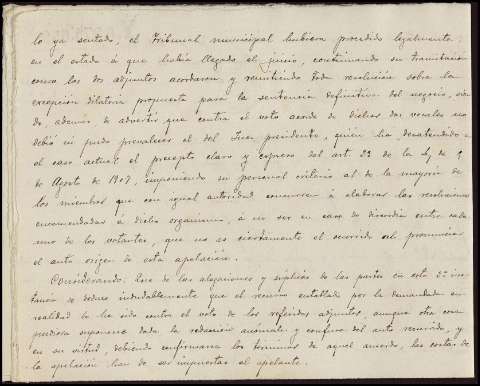 lo ya sentado, el Tribunal municipal hubiera procedido legalmente,
en el estado á que habia llegado el juicio, continuando su tramitación
como los dos adjuntos acordaron, y remitiendo toda resolución sobre la
excepción dilatoria propuesta para la sentencia definitiva del negocio, sien
do además de advertir que contra el voto acorde de dichos dos vocales no
debió ni pudo prevalecer el del Juez presidente, quien ha desatendido en
el caso actual el precepto claro y expreso del art 22 de la Ley de 5
de Agosto de 1907, imponiendo su personal criterio al de la mayoría de
los miembros que con igual autoridad concurren á elaborar las resoluciones
encomendadas á dicho organismo, á no ser en caso de discordia entre cada
uno de los votantes, que no es ciertamente el ocurrido al pronunciar
el auto origen de esta apelación.
Considerando: Que de las alegaciones y súplicas de las partes en esta 2ª ins
tancia se deduce indudablemente que el recurso entablado por la demandada en
realidad lo ha sido contra el voto de los referidos adjuntos, aunque otra cosa
pudiera suponerse dada la redacción anómala y confusa del auto recurrido, y
en su virtud, debiendo confirmarse los términos de aquel acuerdo, las costas de
la apelación han de ser impuestas al apelante.